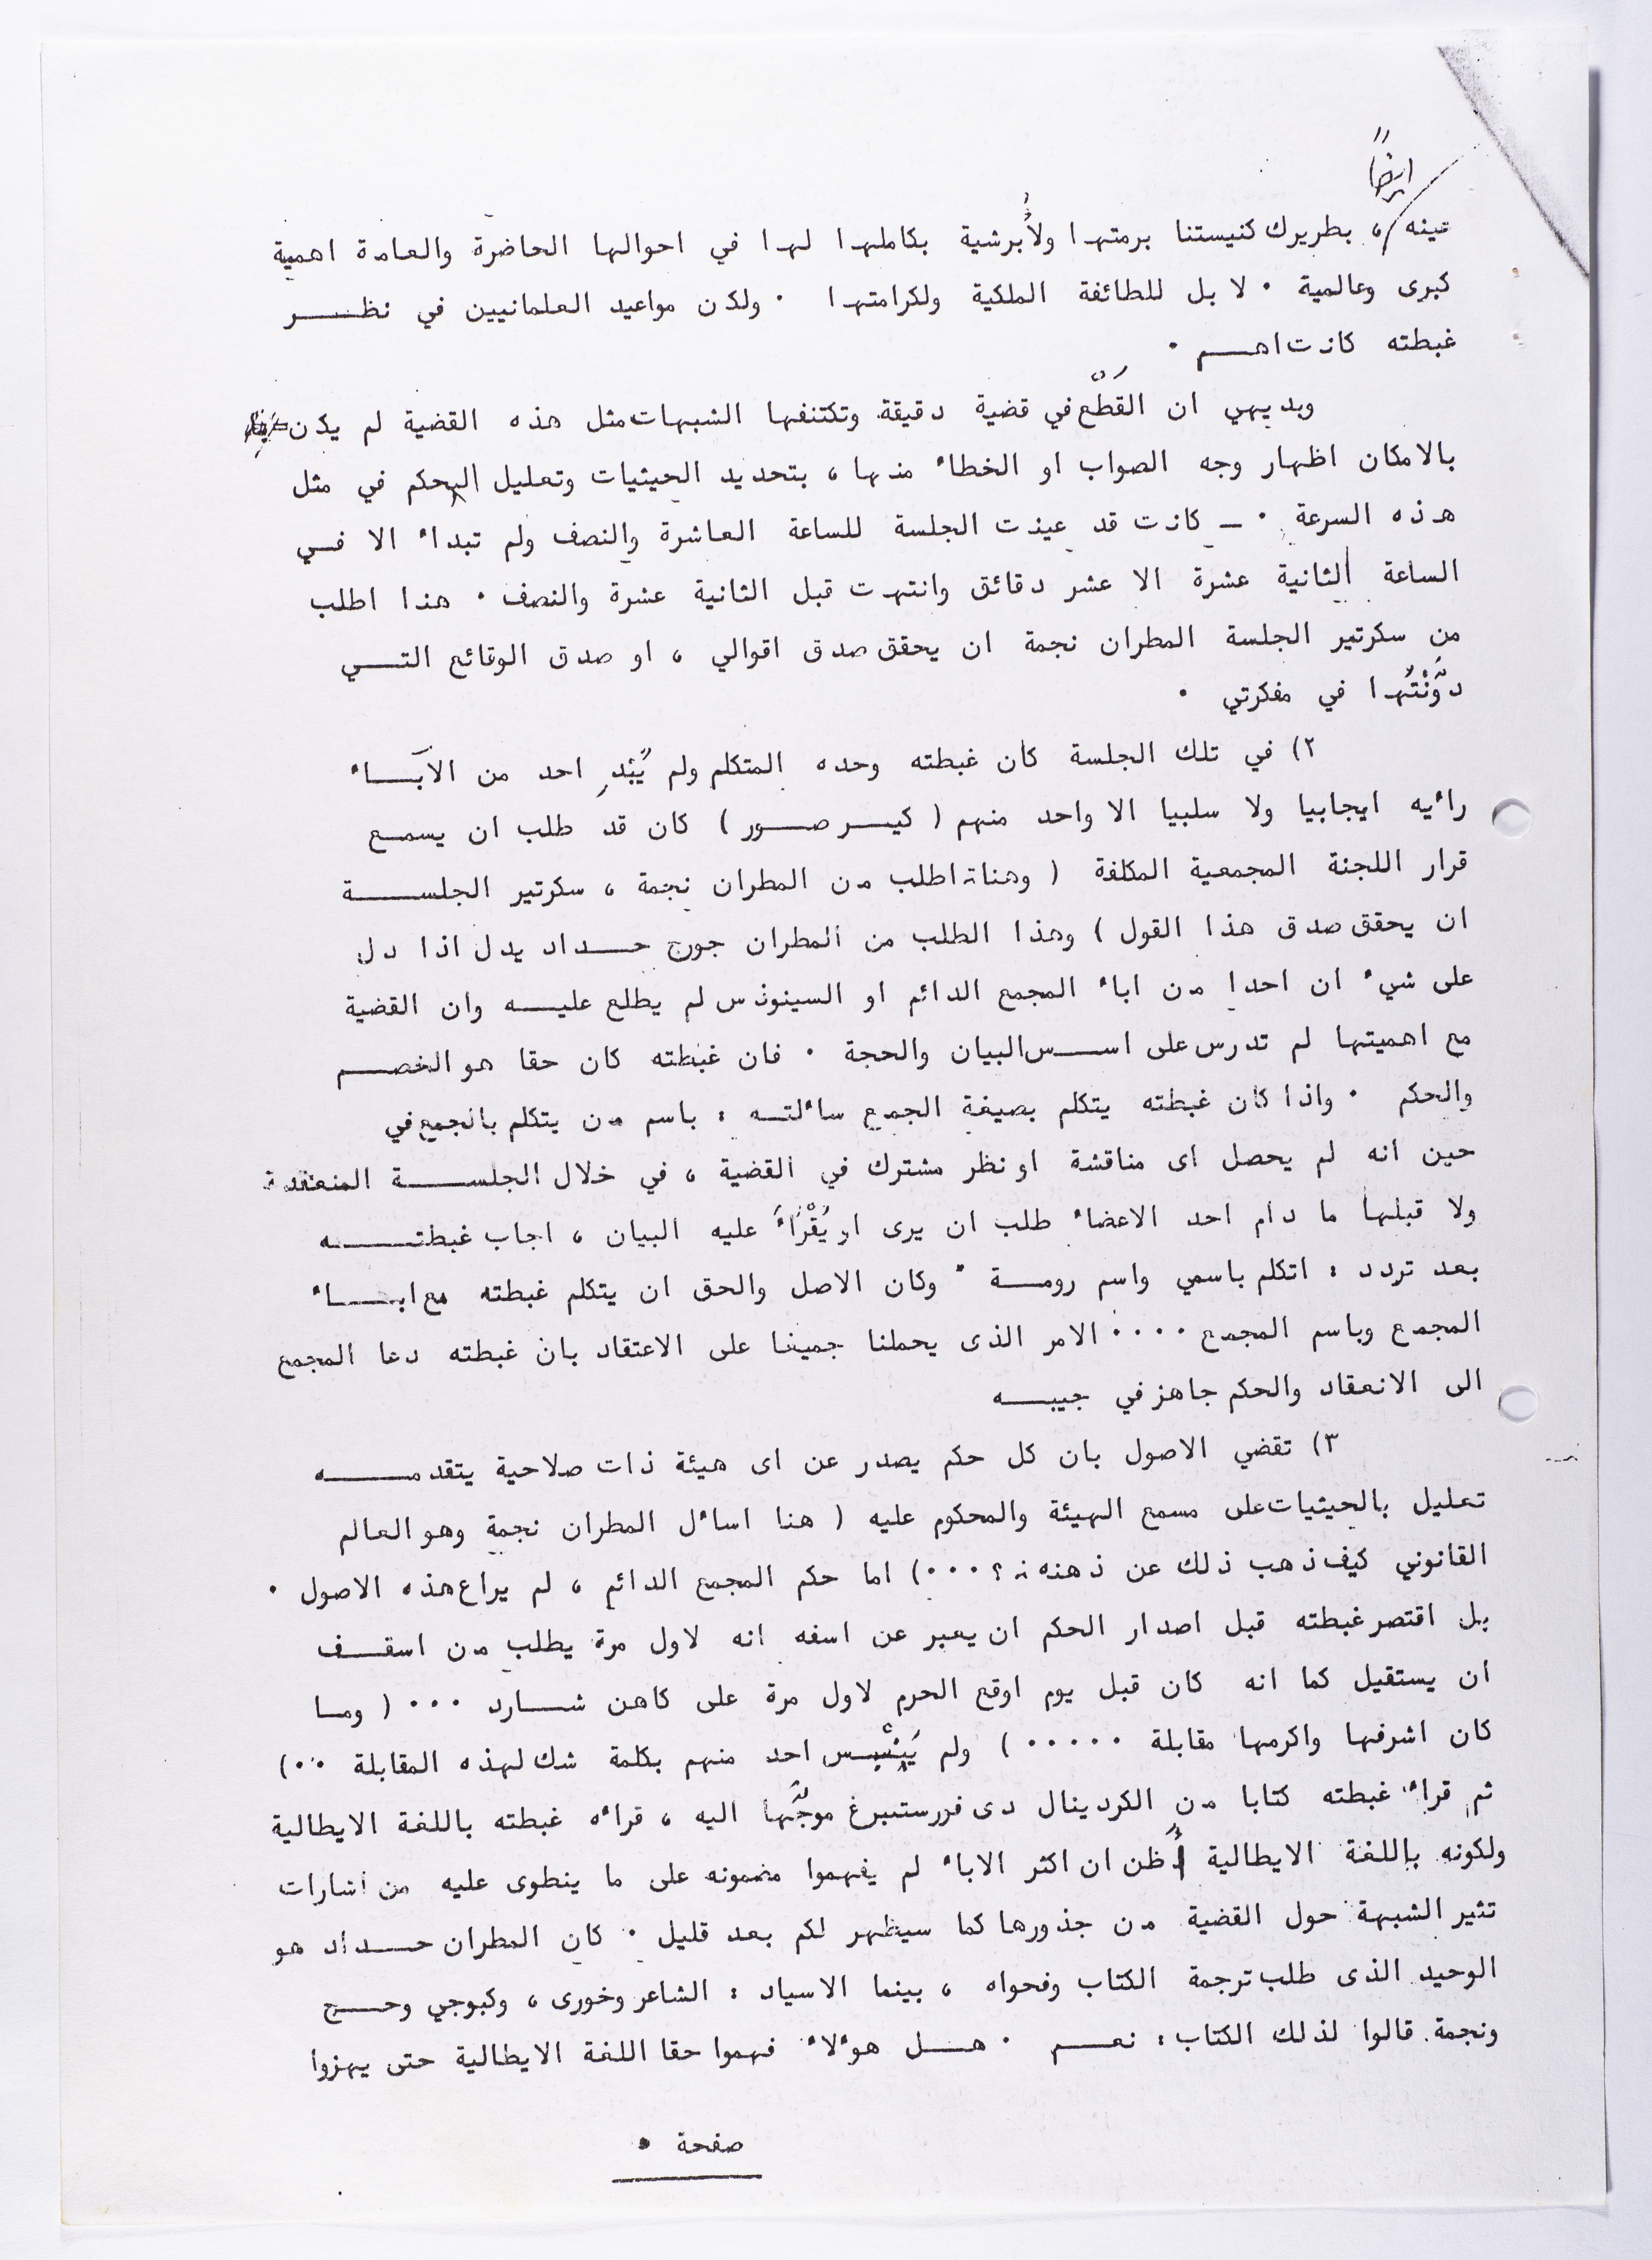 ايضاً
عينه ، بطريرك كنيستنا برمتها ولأبرشية بكاملها لها في احوالها الحاضرة والعامة اهمية
كبرى وعالمية ٠ لا بل للطائفة الملكية ولكرامتها ٠ ولكن مواعيد العلمانيين في نظـــر
غبطته كانت اهـــم ٠
وبديهي ان القَطْع في قضية دقيقة وتكتنفها الشبهات مثل هذه القضية لم يكن
بالامكان اظهار وجه الصواب او الخطاء منها ، بتحديد الحيثيات وتعليل الحكم في مثل
هذه السرعة ٠ ــ كانت قد عينت الجلسة للساعة العاشرة والنصف ولم تبداء الا فــي
الساعة الثانية عشرة الا عشر دقائق وانتهت قبل الثانية عشرة والنصف ٠ هنا اطلب
من سكرتير الجلسة المطران نجمة ان يحقق صدق اقوالي ، او صدق الوقائع التـــي
دوَّنْتُها في مفكرتي ٠
٢) في تلك الجلسة كان غبطته وحده المتكلم ولم يُبْدِ احد من الآبـــاء
راءيه ايجابيا ولا سلبيا الا واحد منهم ( كيـــر صـــور ) كان قد طلب ان يسمــع
قرار اللجنة المجمعية المكلفة ( وهنا اطلب من المطران نجمة ، سكرتير الجلســـة
ان يحقق صدق هذا القول ) وهذا الطلب من المطران جورج حـــداد يدل اذا دل
على شيء ان احدا من اباء المجمع الدائم او السينوذس لم يطلع عليـــه وان القضية
مع اهميتها لم تدرس على اســـس البيان والحجة ٠ فان غبطته كان حقا هو الخصـــم
والحكم ٠ واذا كان غبطته يتكلم بصيغة الجمع ساءلتــه : باسم من يتكلم بالجمع في
حين انه لم يحصل اى مناقشة او نظر مشترك في القضية ، في خلال الجلســـة المنعقدة
ولا قبلها ما دام احد الاعضاء طلب ان يرى او يُقْرَاءَ عليه البيان ، اجاب غبطتـــه
بعد تردد : اتكلم باسمي واسم رومـــة ٠ وكان الاصل والحق ان يتكلم غبطته مع ابـــاء
المجمع وباسم المجمع ٠٠٠٠ الامر الذى يحملنا جميعا على الاعتقاد بان غبطته دعا المجمع
الى الانعقاد والحكم جاهز في جيبـــه
٣) تقضي الاصول بان كل حكم يصدر عن اى هيئة ذات صلاحية يتقدمـــه
تعليل بالحيثيات على مسمع الهيئة والمحكوم عليه ( هنا اساءل المطران نجمة وهو العالم
القانوني كيف ذهب ذلك عن ذهنه ؟ ٠٠٠) اما حكم المجمع الدائم ، لم يراع هذه الاصول ٠
بل اقتصر غبطته قبل اصدار الحكم ان يعبر عن اسفه انه لاول مرة يطلب من اسقـــف
ان يستقيل كما انه كان قبل يوم اوقع الحرم لاول مرة على كاهن شـــارد ٠٠٠ ( ومــا
كان اشرفها واكرمها مقابلة ٠٠٠٠٠ ) ولم يَنْبِس احد منهم بكلمة شك لهذه المقابلة ٠٠)
ثم قراء غبطته كتابا من الكردينال دى فورستنبرغ موجَّها اليه ، قراءه غبطته باللغة الايطالية
ولكونه باللغة الايطالية أُظن ان اكثر الاباء لم يفهموا مضمونه على ما ينطوى عليه من اشارات
تثير الشبهة حول القضية من جذورها كما سيظهر لكم بعد قليل ٠ كان المطران حـــداد هو
الوحيد الذى طلب ترجمة الكتاب وفحواه ، بينما الاسياد : الشاعر وخورى ، وكبوجي وحـــج
ونجمة قالوا لذلك الكتاب : نعـــم ٠ هـــل هوءلاء فهموا حقا اللغة الايطالية حتى يهزوا
صفحة ٥